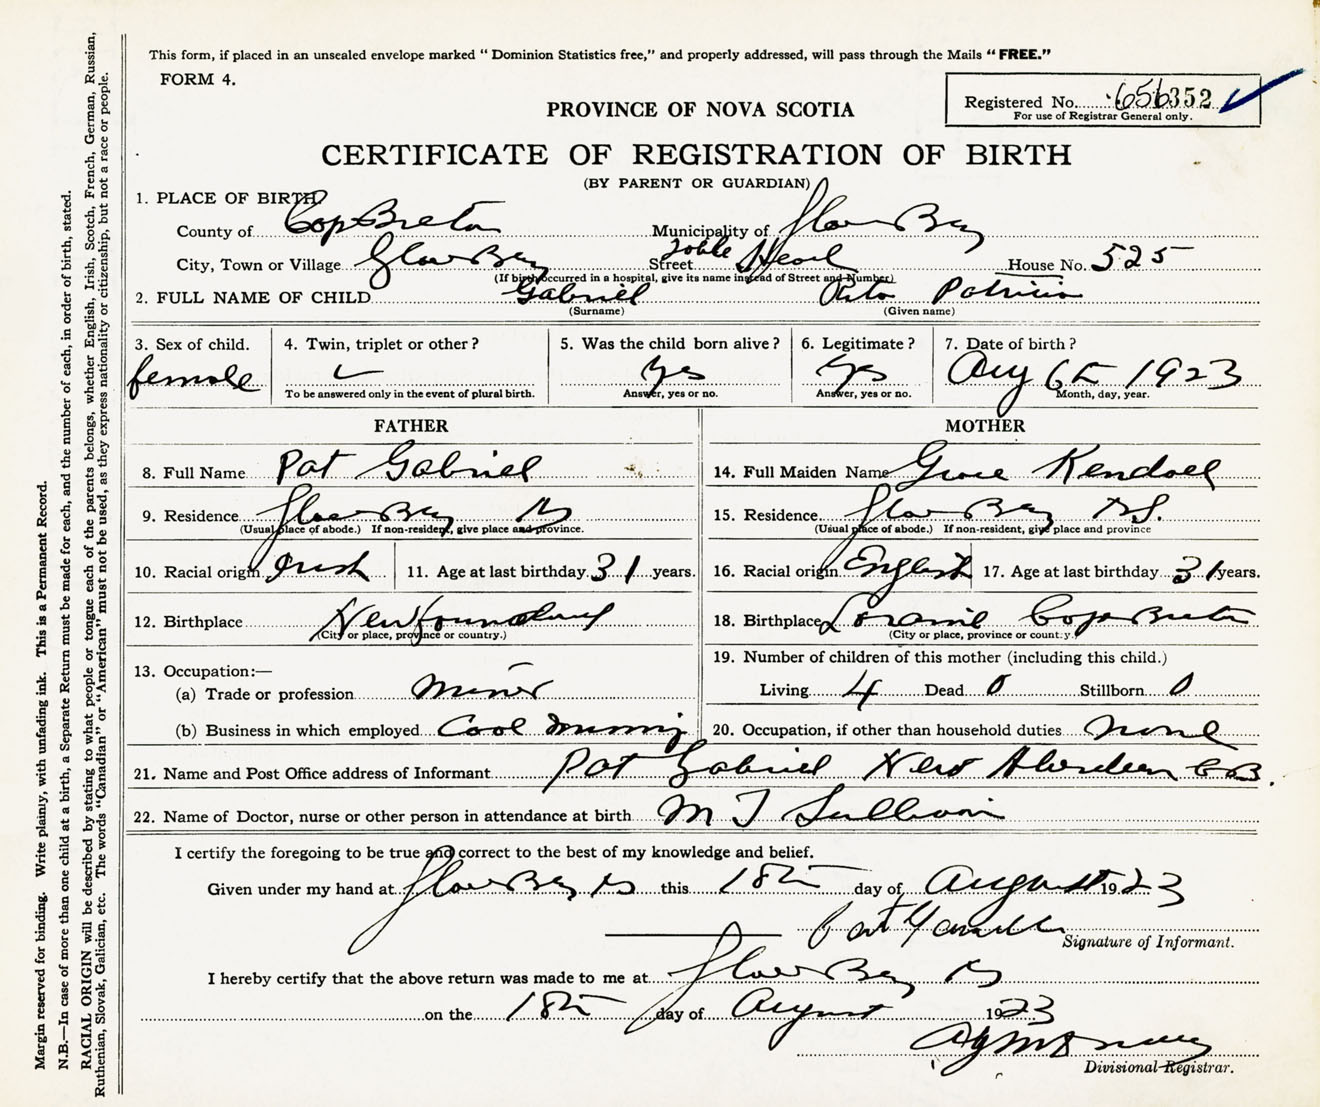 This form, if placed in an unsealed envelope marked "Dominion Statistics free," and properly addressed, will pass through the Mails "FREE."
FORM 4.
Registered No. 656352
For use of Registrar General only.
PROVINCE OF NOVA SCOTIA
CERTIFICATE OF REGISTRATION OF BIRTH
(BY PARENT OR GUARDIAN)
1. PLACE OF BIRTH
County of Cape Breton Municipality of Glace Bay
City, Town or Village Glace Bay Street Table Head House No. 525
(If birth occurred in a hospital, give its name instead of Street and Number)
2. FULL NAME OF CHILD Gabriel Rita Patricia
(Surname) (Given name)
3. Sex of child. 4. Twin, triplet or other? 5. Was the child born alive? 6. Legitimate? 7. Date of birth?
female Yes Yes Aug 6th 1923
To be answered only in the event of plural birth. Answer, yes or no. Answer, yes or no. Month, day, year.
FATHER MOTHER
8. Full Name Pat Gabriel 14. Full Maiden Name Grace Kendall
9. Residence Glace Bay NS 15. Residence Glace Bay N.S.
(Usual place of abode.) If non-resident, give place and province. (Usual place of abode.) If non-resident, give place and province
10. Racial origin Irish 11. Age at last birthday 31 years. 16. Racial origin English 17. Age at last birthday 31 years.
12. Birthplace Newfoundland 18. Birthplace Cape Breton
(City or place, province or country.) (City or place, province or country.)
13. Occupation:— 19. Number of children of this mother (including this child.)
(a) Trade or profession Miner Living 4 Dead 0 Stillborn 0
(b) Business in which employed Coal Mining 20. Occupation, if other than household duties none
21. Name and Post Office address of Informant Pat Gabriel New Aberdeen C.B.
22. Name of Doctor, nurse or other person in attendance at birth M T Sullivan
I certify the foregoing to be true and correct to the best of my knowledge and belief.
Given under my hand at Glace Bay NS this 18th day of August 1923
Signature of Informant.
I hereby certify that the above return was made to me at Glace Bay NS
on the 18th day of August 1923
Divisional Registrar.
Margin reserved for binding. Write plainly, with unfading ink. This is a Permanent Record.
N.B.—In case of more than one child at a birth, a Separate Return must be made for each, and the number of each, in order of birth, stated.
RACIAL ORIGIN will be described by stating to what people or tongue each of the parents belongs, whether English, Irish, Scotch, French, German, Russian,
Ruthenian, Slovak, Galician, etc. The words "Canadian" or "American" must not be used, as they express nationality or citizenship, but not a race or people.